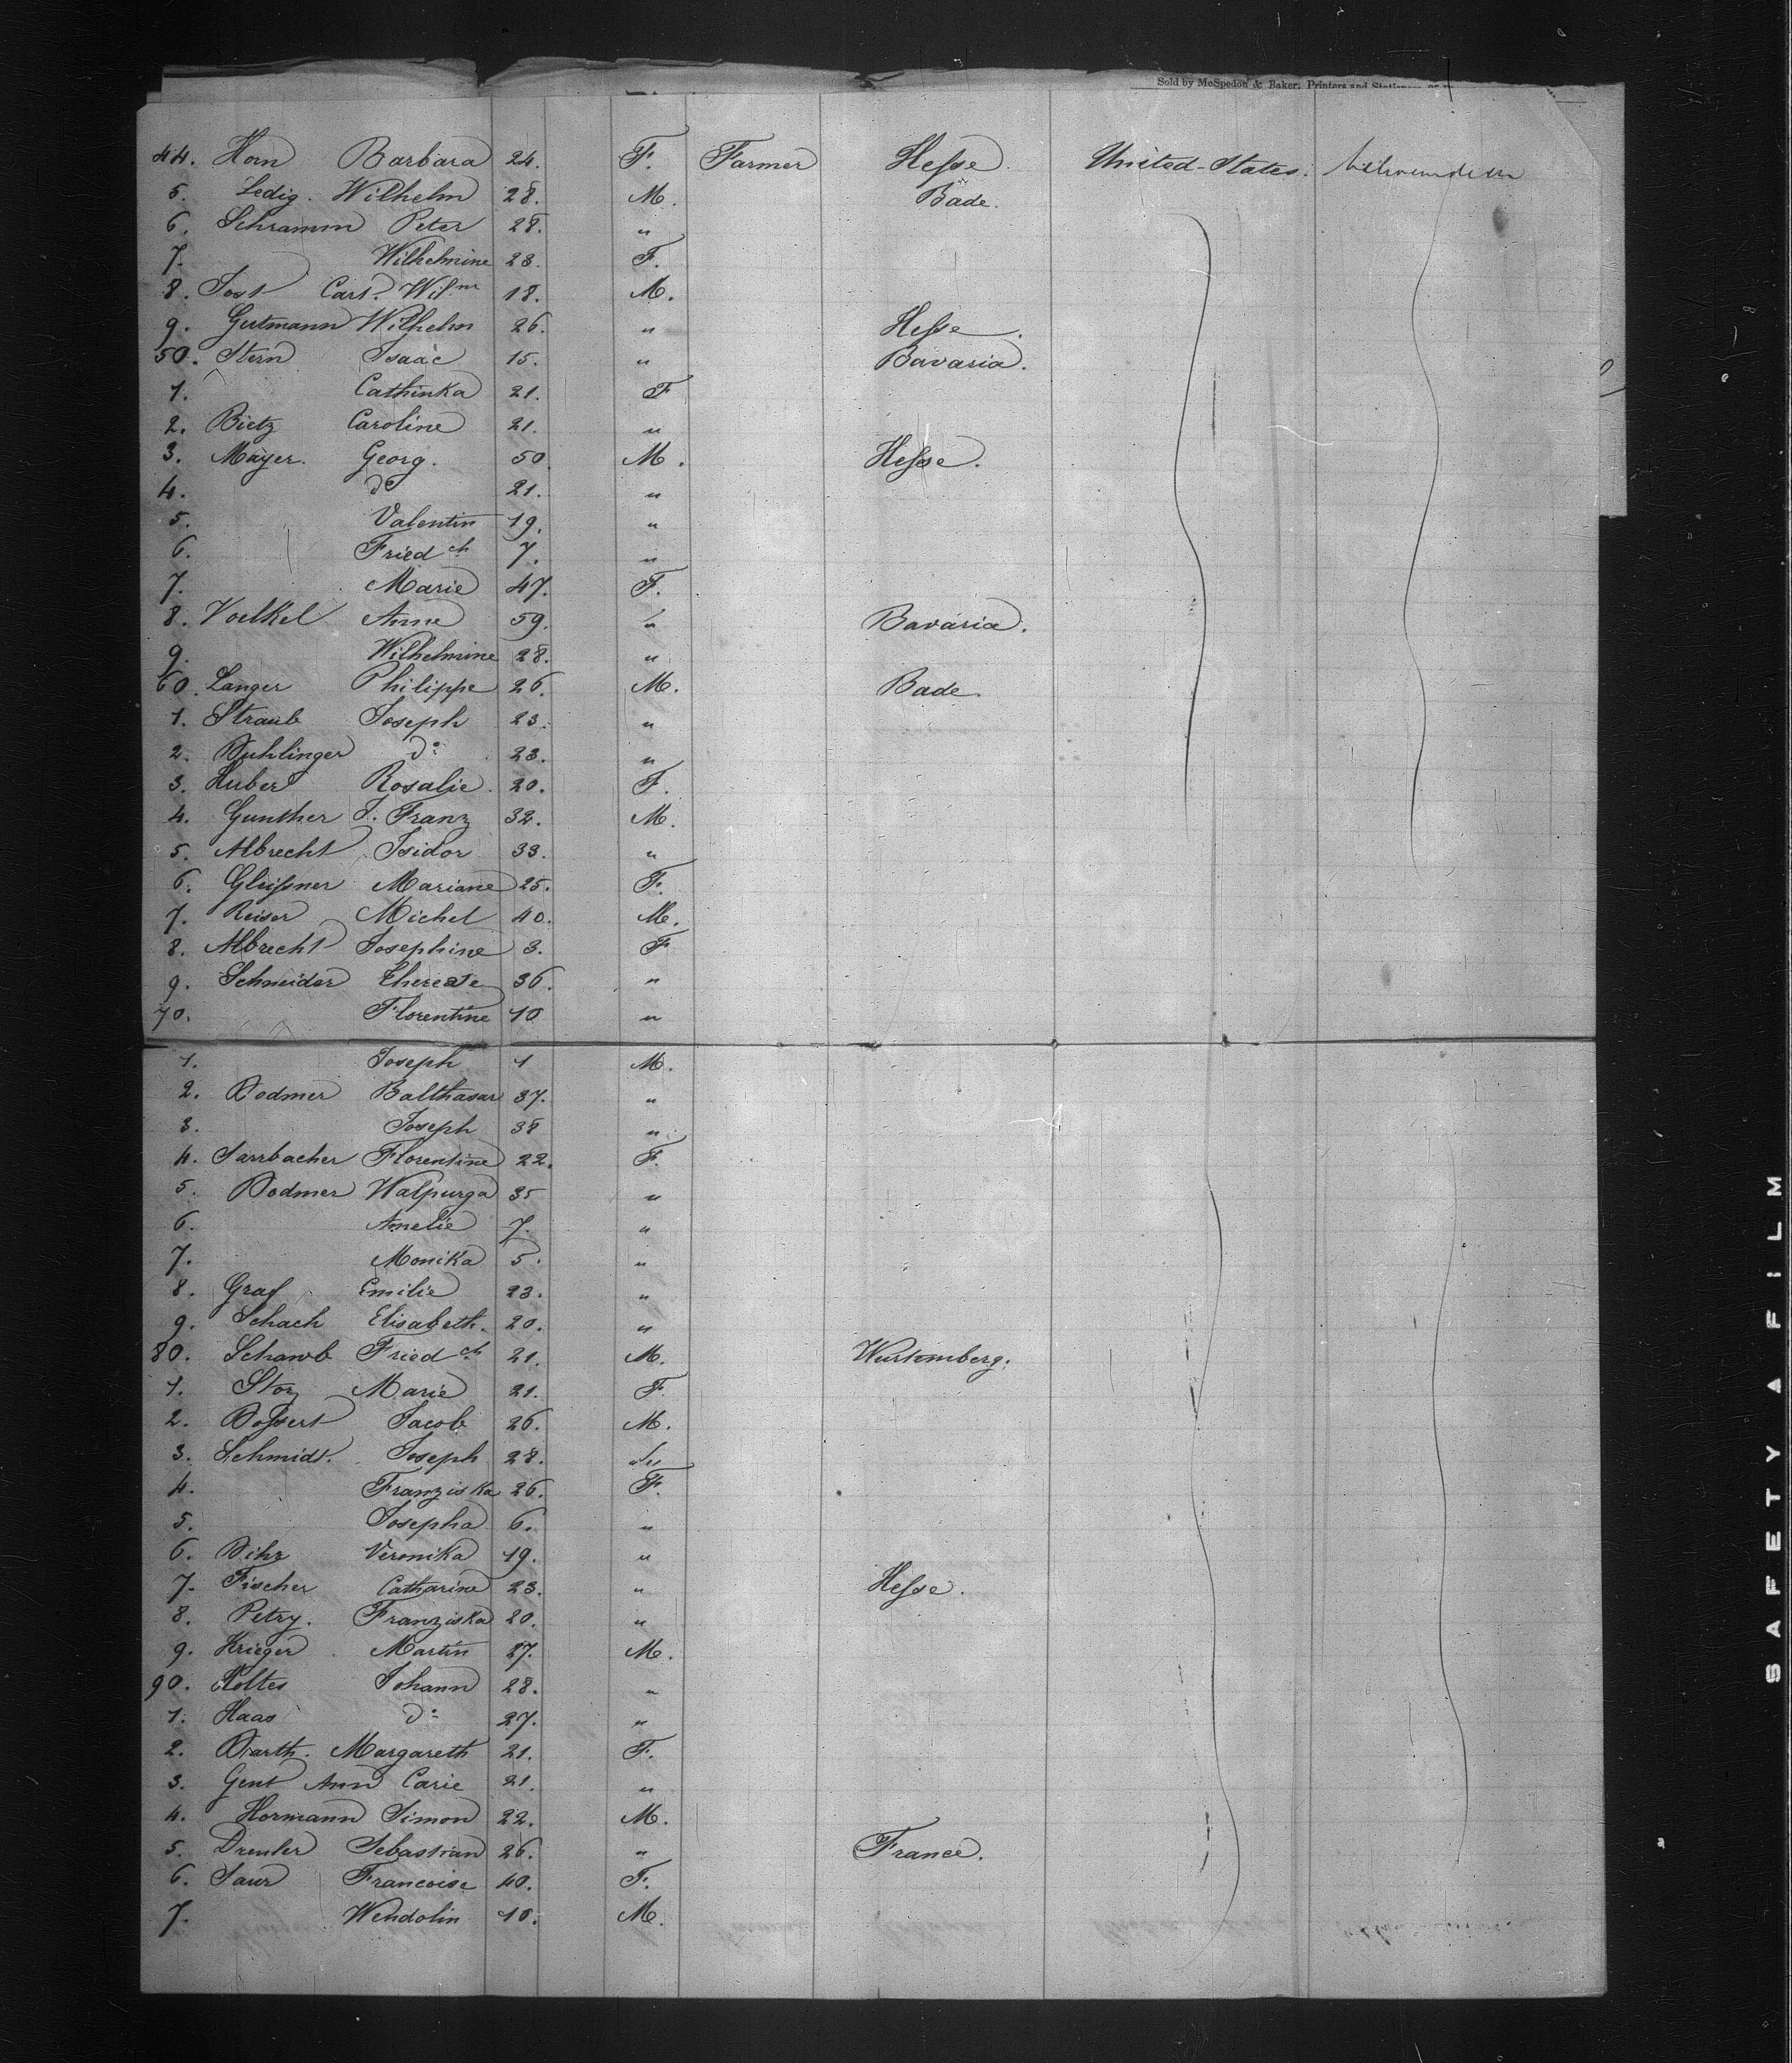 Sold by McSpedon & Baker, Printers and Stationers
44. Horn Barbara 24. F. Farmer Hesse United-States.
5. Ledig. Wilhelm 28. M. Bade.
6. Schramm Peter 28. "
7. Wilhelmine 23. F.
8. Jost Carl. Wilm 18. M.
9. Gutmann Wilhelm 26. " Hesse.
50. Stern Isaac 15. " Bavaria.
1. Cathinka 21. F
2. Bietz Caroline 21. "
3. Mayer. Georg. 50 M. Hesse.
4. do 21. "
5. Valentin 19. "
6. Friedch 7. "
7. Marie 47. F.
8. Voelkel Anne 59. " Bavaria.
9. Wilhelmine 28. "
60. Langer Philippe 26. M. Bade.
1. Straub Joseph 23. "
2. Buhlinger do 23. "
3. Huber Rosalie. 20. F.
4. Gunther J. Franz 32. M.
5. Albrecht Isidor 33. "
6. Gleissner Mariane 25. F.
7. Reiser Michel 40. M.
8. Albrecht Josephine 3. F
9. Schneider Therese 36. "
70. Florentine 10 "
1. Joseph 1 M.
2. Bodmer Balthasar 37. "
3. Joseph 38 "
4. Sarrbacher Florentine 22. F.
5. Bodmer Walpurga 35 "
6. Amelie 7. "
7. Monika 5. "
8. Graf Emilie 23. "
9. Schach Elisabeth. 20. "
80. Schawb Friedch 21. M. Wurtemberg.
1. Storz Marie 21. F.
2. Bossert Jacob 26. M.
3. Schmidt. Joseph 28. "
4. Franziska 26. F.
5. Josepha 6. "
6. Bihr Veronika 19. "
7. Fischer Catharine 23. " Hesse.
8. Petry. Franziska 20. "
9. Krieger Martin 27. M.
90. Koltes Johann 28. "
1. Haas do 27. "
2. Barth. Margareth 21. F.
3. Gent Ann Carie 21. "
4. Hormann Simon 22. M.
5. Drenler Sebastian 26. " France.
6. Saur Francoise 40. F.
7. Wendolin 10. M.
SAFETY A FILM